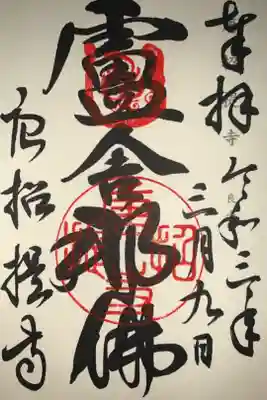 奉拝
令和三年
三月九日
盧舎那佛
唐招提寺